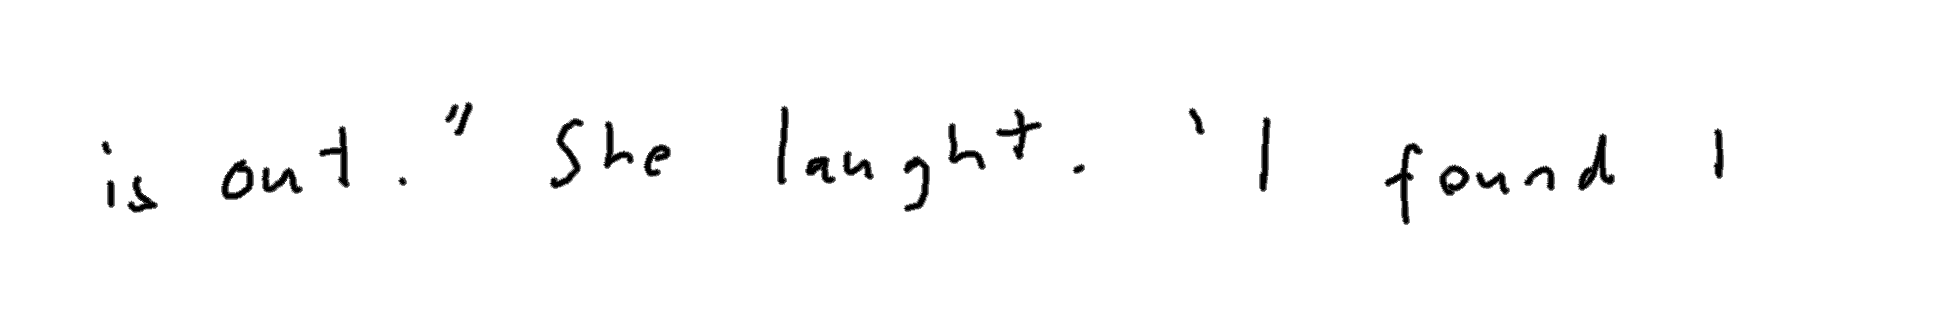 is out." She laught. 'I found I